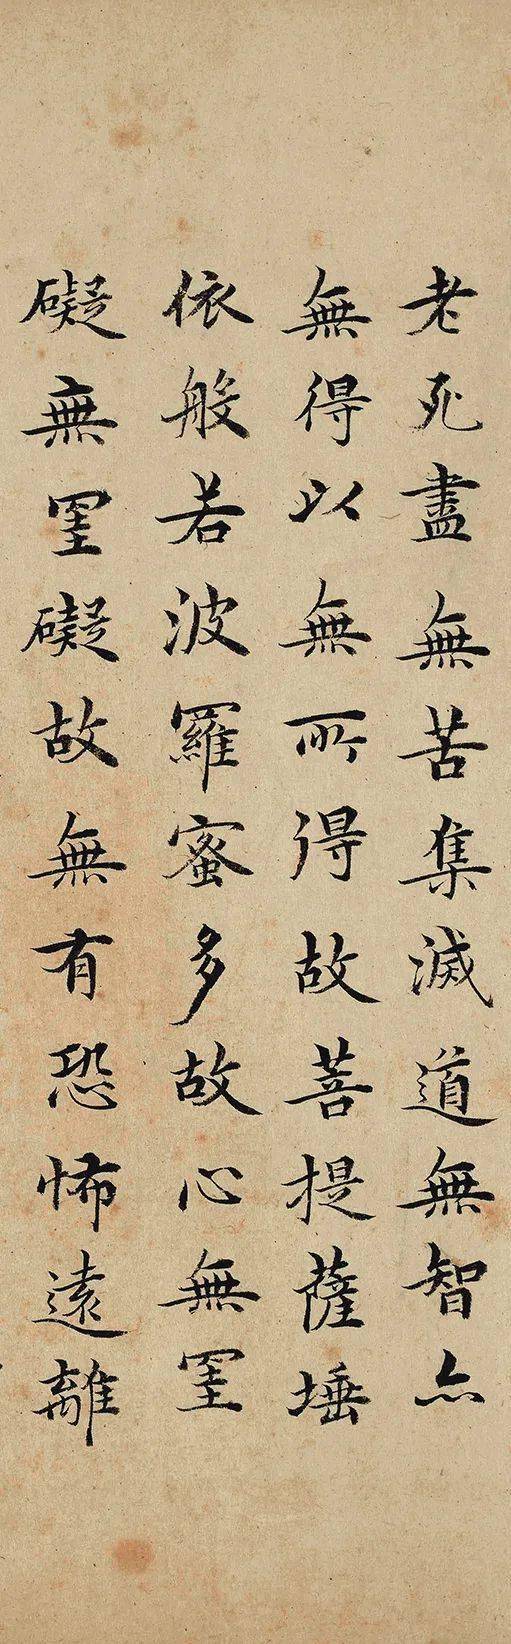 老死盡無苦集滅道無智亦
無得以無所得故菩提薩埵
依般若波羅蜜多故心無罣
礙無罣礙故無有恐怖遠離